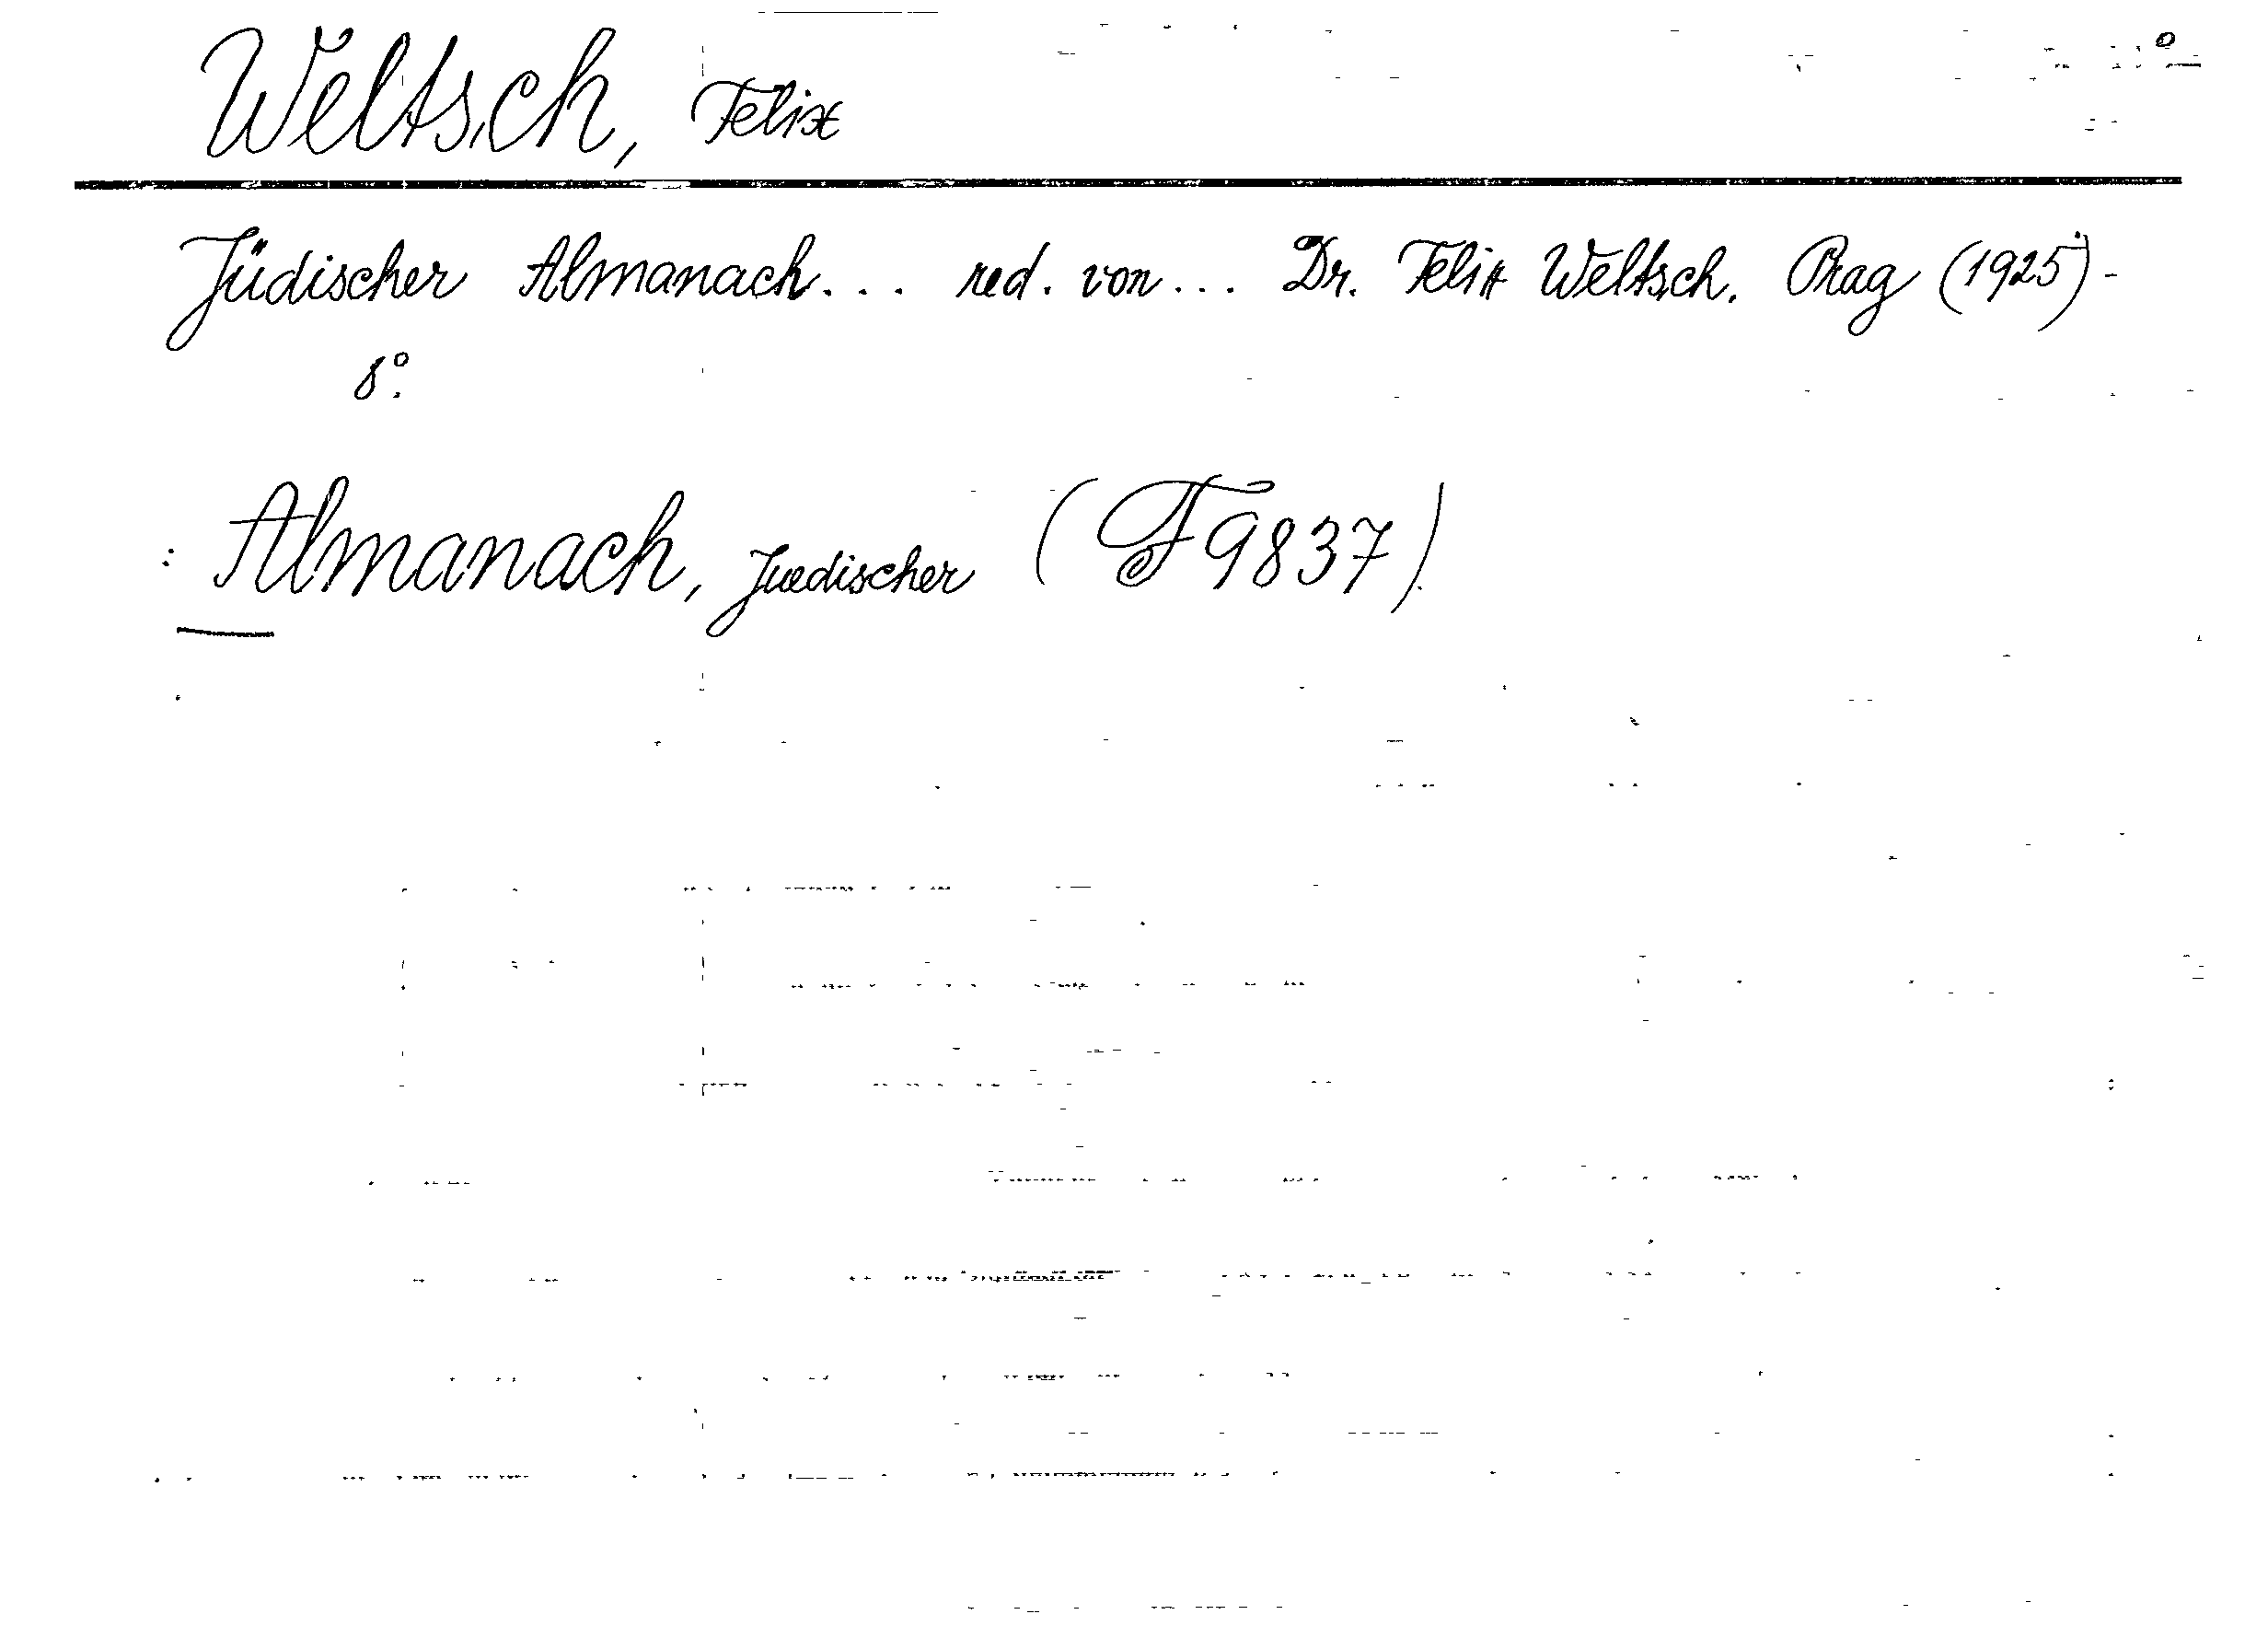 Weltsch, Felix
Jüdischer Almanach... red. von... Dr. Felix Weltsch. Prag (1925)-
8°.
: Almanach, Juedischer (F 9837)